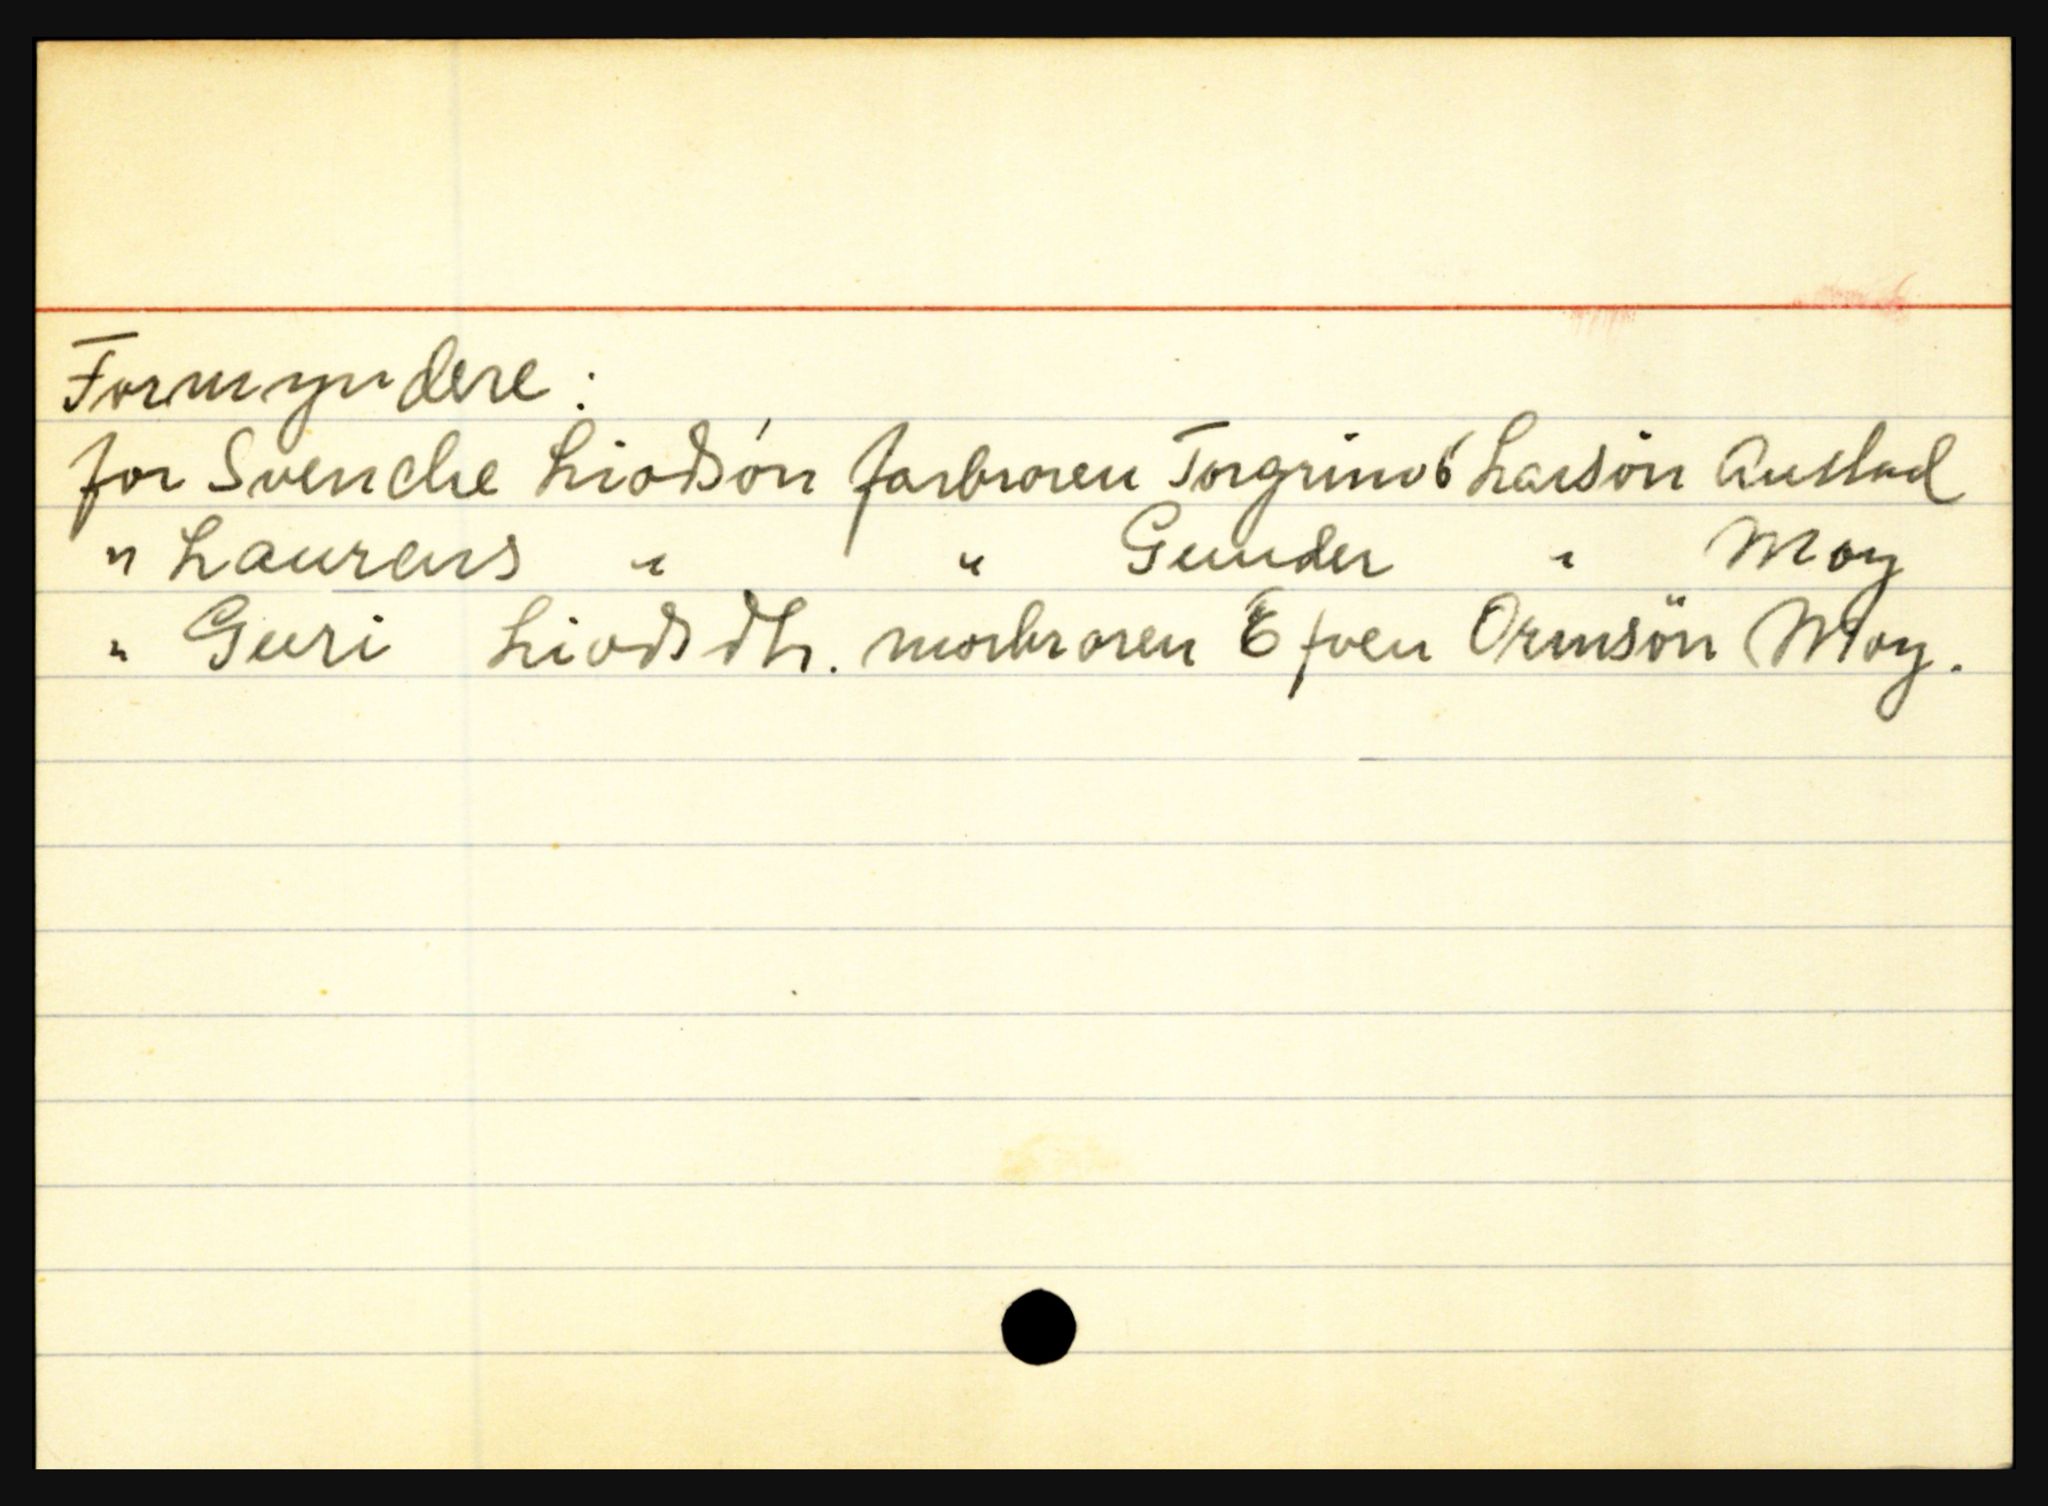 Formyndere:
for Svenche Liodsön farbroren Torgrimb Larsön Austad
" Laurens " " Gunder " Moy
" Guri Liodsdtr. morbroren Efven Ormsön Moy.